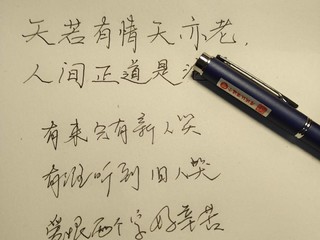 天若有情天亦老.
人间正道是
有来只有新人笑
有谁听到旧人哭
恨两个字好辛苦